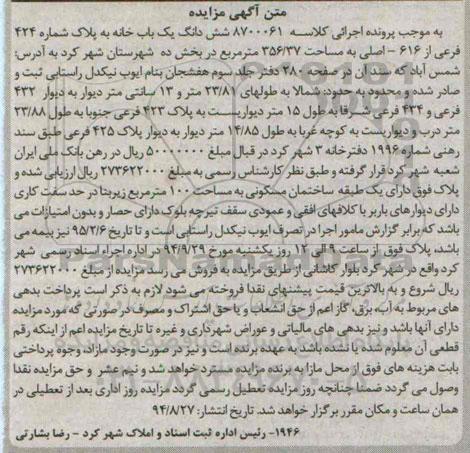 متن آگهی مزایده
به موجب پرونده اجرائی کلاسه ۸۷۰۰۰۶۱ شش دانگ یک باب خانه به پلاک شماره ۴۲۴
فرعی از ۶۱۶ – اصلی به مساحت ۳۵۶/۳۷ مترمربع در بخش ده شهرستان شهر کرد به آدرس:
شمس آباد که سند آن در صفحه ۳۸۰ دفتر جلد سوم هفشجان بنام ایوب نیکدل راستابی ثبت و
صادر شده و محدود به حدود: شمالا به طولهای ۲۳/۸۱ متر و ۱۳ سانتی متر دیوار به دیوار ۴۳۲
فرعی و ۴۳۴ فرعی شرقا به طول ۱۵ متر دیواریست به پلاک ۴۲۳ فرعی جنوبا به طول ۲۳/۸۸
متر درب و دیواریست به کوچه غربا به طول ۱۴/۸۵ متر دیوار به دیوار پلاک ۴۲۵ فرعی طبق سند
رهنی شماره ۱۹۹۶ دفترخانه ۳ شهر کرد در قبال مبلغ ۵۰۰۰۰۰۰۰ ریال در رهن بانک ملی ایران
شعبه شهر کرد قرار گرفته و طبق نظر کارشناس رسمی به مبلغ ۲۷۳۶۲۲۰۰۰ ریال ارزیابی شده و
پلاک فوق دارای یک طبقه ساختمان مسکونی به مساحت ۱۰۰ مترمربع زیربنا در حد سفت کاری
دارای دیوارهای باربر با کلافهای افقی و عمودی سقف تیرچه بلوک دارای حصار و بدون امتیازات می
باشد که برابر گزارش مامور اجرا در تصرف ایوب نیکدل راستابی است و تا تاریخ ۹۵/۲/۶ نیز بیمه می
باشد، پلاک فوق از ساعت ۹ الی ۱۲ روز یکشنبه مورخ ۹۴/۹/۲۹ در اداره اجراء اسناد رسمی شهر
کرد واقع در شهر کرد بلوار کاشانی از طریق مزایده به فروش می رسد مزایده از مبلغ ۲۷۳۶۲۲۰۰۰
ریال شروع و به بالاترین قیمت پیشنهادی نقدا فروخته می شود لازم به ذکر است پرداخت بدهی
های مربوط به آب، برق، گاز اعم از حق انشعاب و یا حق اشتراک و مصرف در صورتی که مورد مزایده
دارای آنها باشد و نیز بدهی های مالیاتی و عوارض شهرداری و غیره تا تاریخ مزایده اعم از اینکه رقم
قطعی آن معلوم شده یا نشده باشد به عهده برنده است و نیز در صورت وجود مازاد، وجوه پرداختی
بابت هزینه های فوق از محل مازا به برنده مزایده مسترد خواهد شد و نیم عشر و حق مزایده نقدا
وصول می گردد ضمنا چنانچه روز مزایده تعطیل رسمی گردد مزایده روز اداری بعد از تعطیلی در
همان ساعت و مکان مقرر برگزار خواهد شد. تاریخ انتشار: ۹۴/۸/۲۷
۱۹۴۶– رئیس اداره ثبت اسناد و املاک شهر کرد – رضا بشارتی